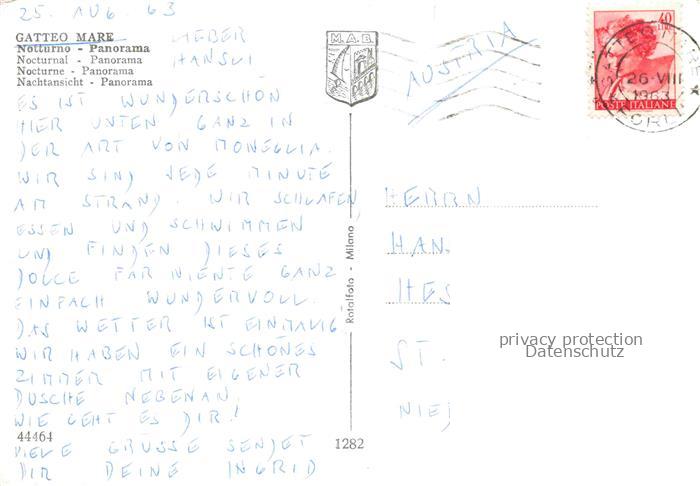 25. AUG. 63
GATTEO MARE
Notturno - Panorama
Nocturnal - Panorama
Nocturne - Panorama
Nachtansicht - Panorama
LIEBER
HANSLI
ES IST WUNDERSCHÖN
HIER UNTEN GANZ IN
DER ART VON MONEGLIA.
WIR SIND JEDE MINUTE
AM STRAND. WIR SCHLAFEN
ESSEN UND SCHWIMMEN
UND FINDEN DIESES
DOLCE FAR NIENTE GANZ
EINFACH WUNDERVOLL.
DAS WETTER IST EINMALIG
WIR HABEN EIN SCHÖNES
ZIMMER MIT EIGENER
DUSCHE NEBENAN.
WIE GEHT ES DIR!
44464
VIELE GRÜSSE SENDET
DIR DEINE INGRID
1282
M.A.B.
Rotalfoto - Milano
AUSTRIA
40
POSTE ITALIANE
26·VIII
1963
HERRN
HAN
HES
ST.
privacy protection
Datenschutz